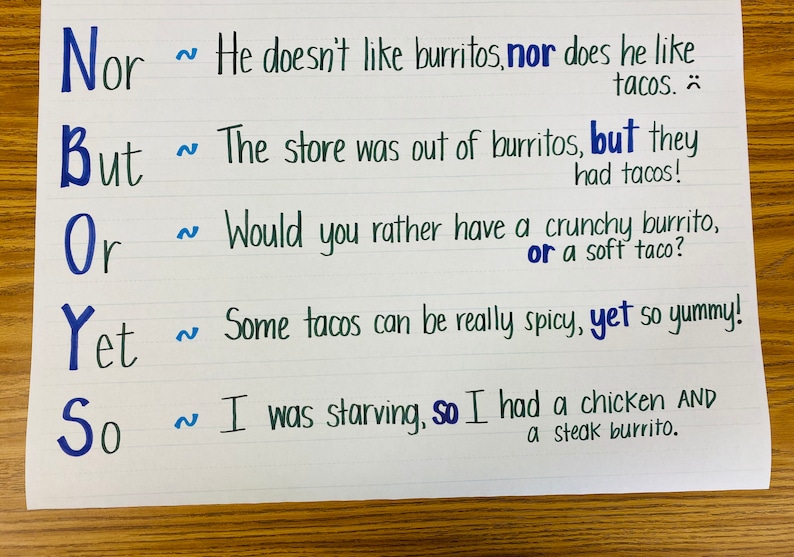 Nor ~ He doesn't like burritos, nor does he like
tacos. ☹
But ~ The store was out of burritos, but they
had tacos!
Or ~ Would you rather have a crunchy burrito,
or a soft taco?
Yet ~ Some tacos can be really spicy, yet so yummy!
So ~ I was starving, so I had a chicken AND
a steak burrito.